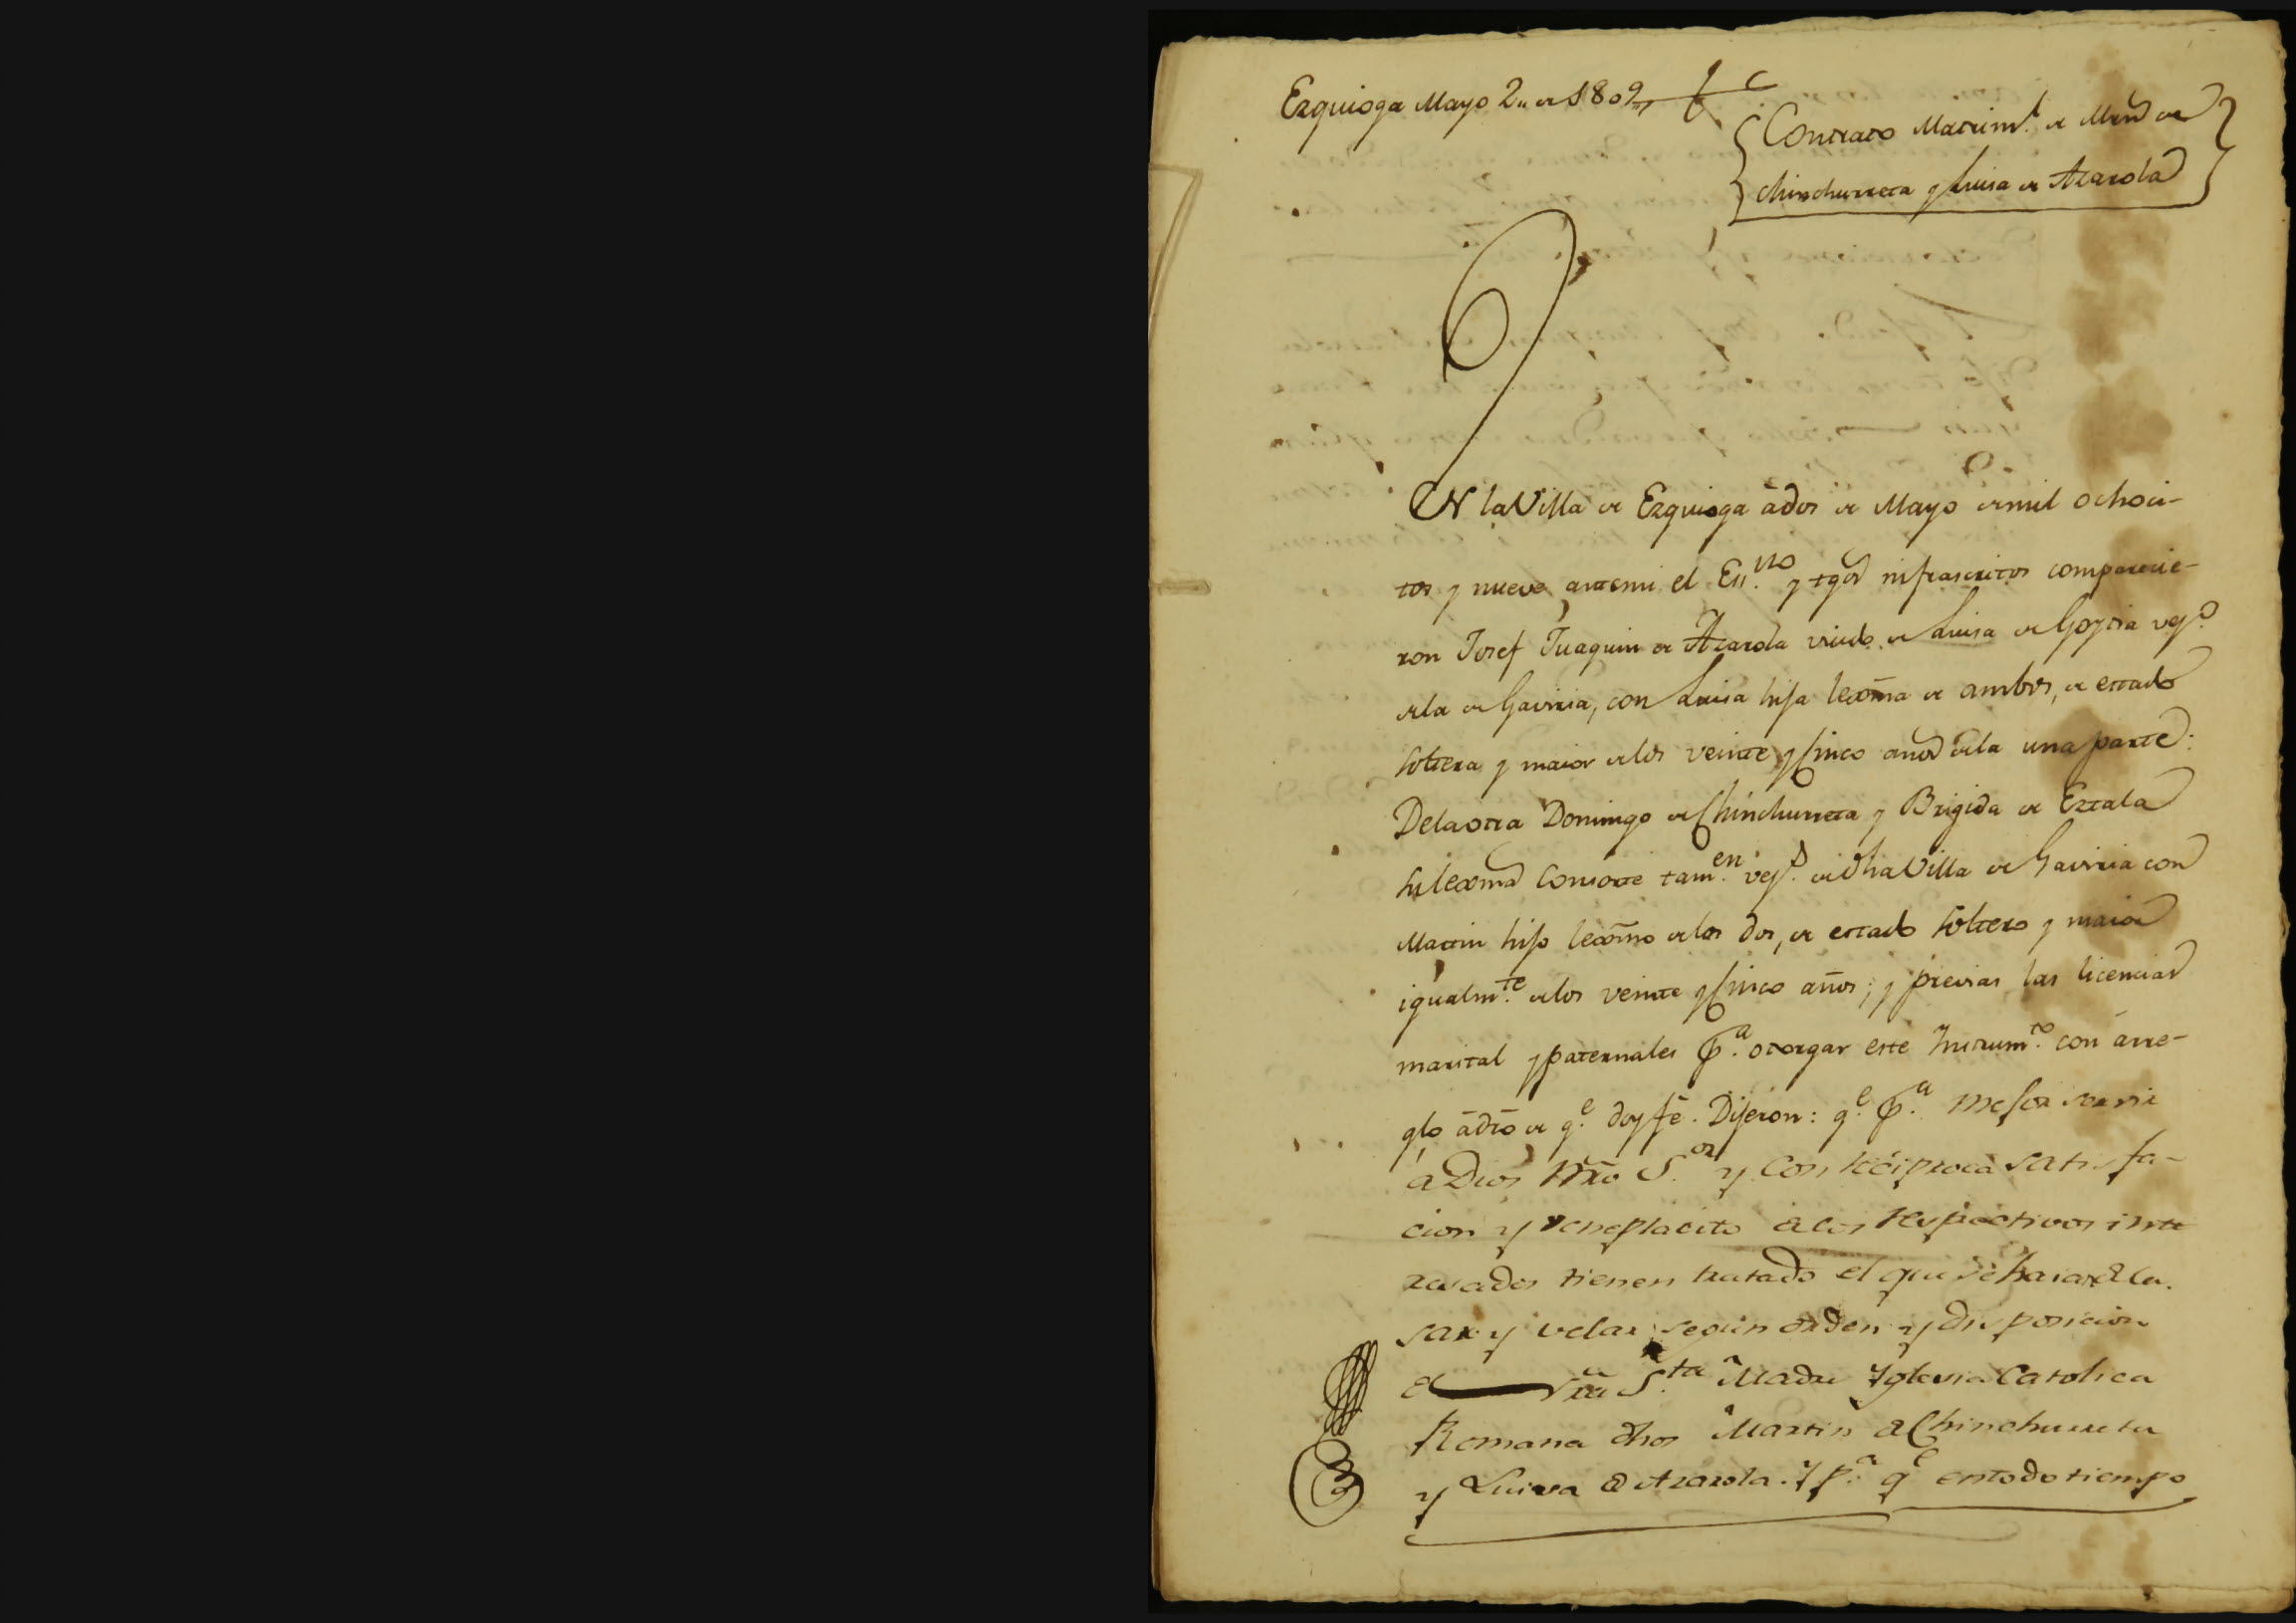 Ezquioga Mayo 2,, de 1809,,
Contrato Matrim.l de Mrn de
Chinchurreta y Luisa de Azarola
EN la Villa de Ezquioga â dos de Mayo de mil ochoci-
tos y nueve, ante mi el Es.no y tgos infrascritos comparecie-
ron Josef Juaquin de Azarola viudo de Luisa de Goytia vez.o
de la de Gaviria, con Luisa hija lexma de ambos, de estado
soltera y maior de los veinte y sinco anos de la una parte:
De la otra Domingo de Chinchurreta y Brigida de Eztala
su lexma Consorte tam.en vez.s de dha Villa de Gaviria con
Martin hijo lexmo de los dos, de estado soltero y maior
igualm.te de los veinte y sinco años; y previas las licencias
marital y paternales p.a otorgar este Instrum.to con arre-
glo â dro de q.e doy fê. Dijeron: q.e p.a mejor servir
a Dios Nro S.or y con reciproca satisfa-
cion y veneplacito de los respectivos inte
resados tienen tratado el que se haian de ca.
sar y velar segun orden y disposicion
de nra S.ta Madre Yglesia Catolica
Romana dhos Martin de Chinchurreta
y Luisa de Azarola. Y p.a q.e en todo tiempo